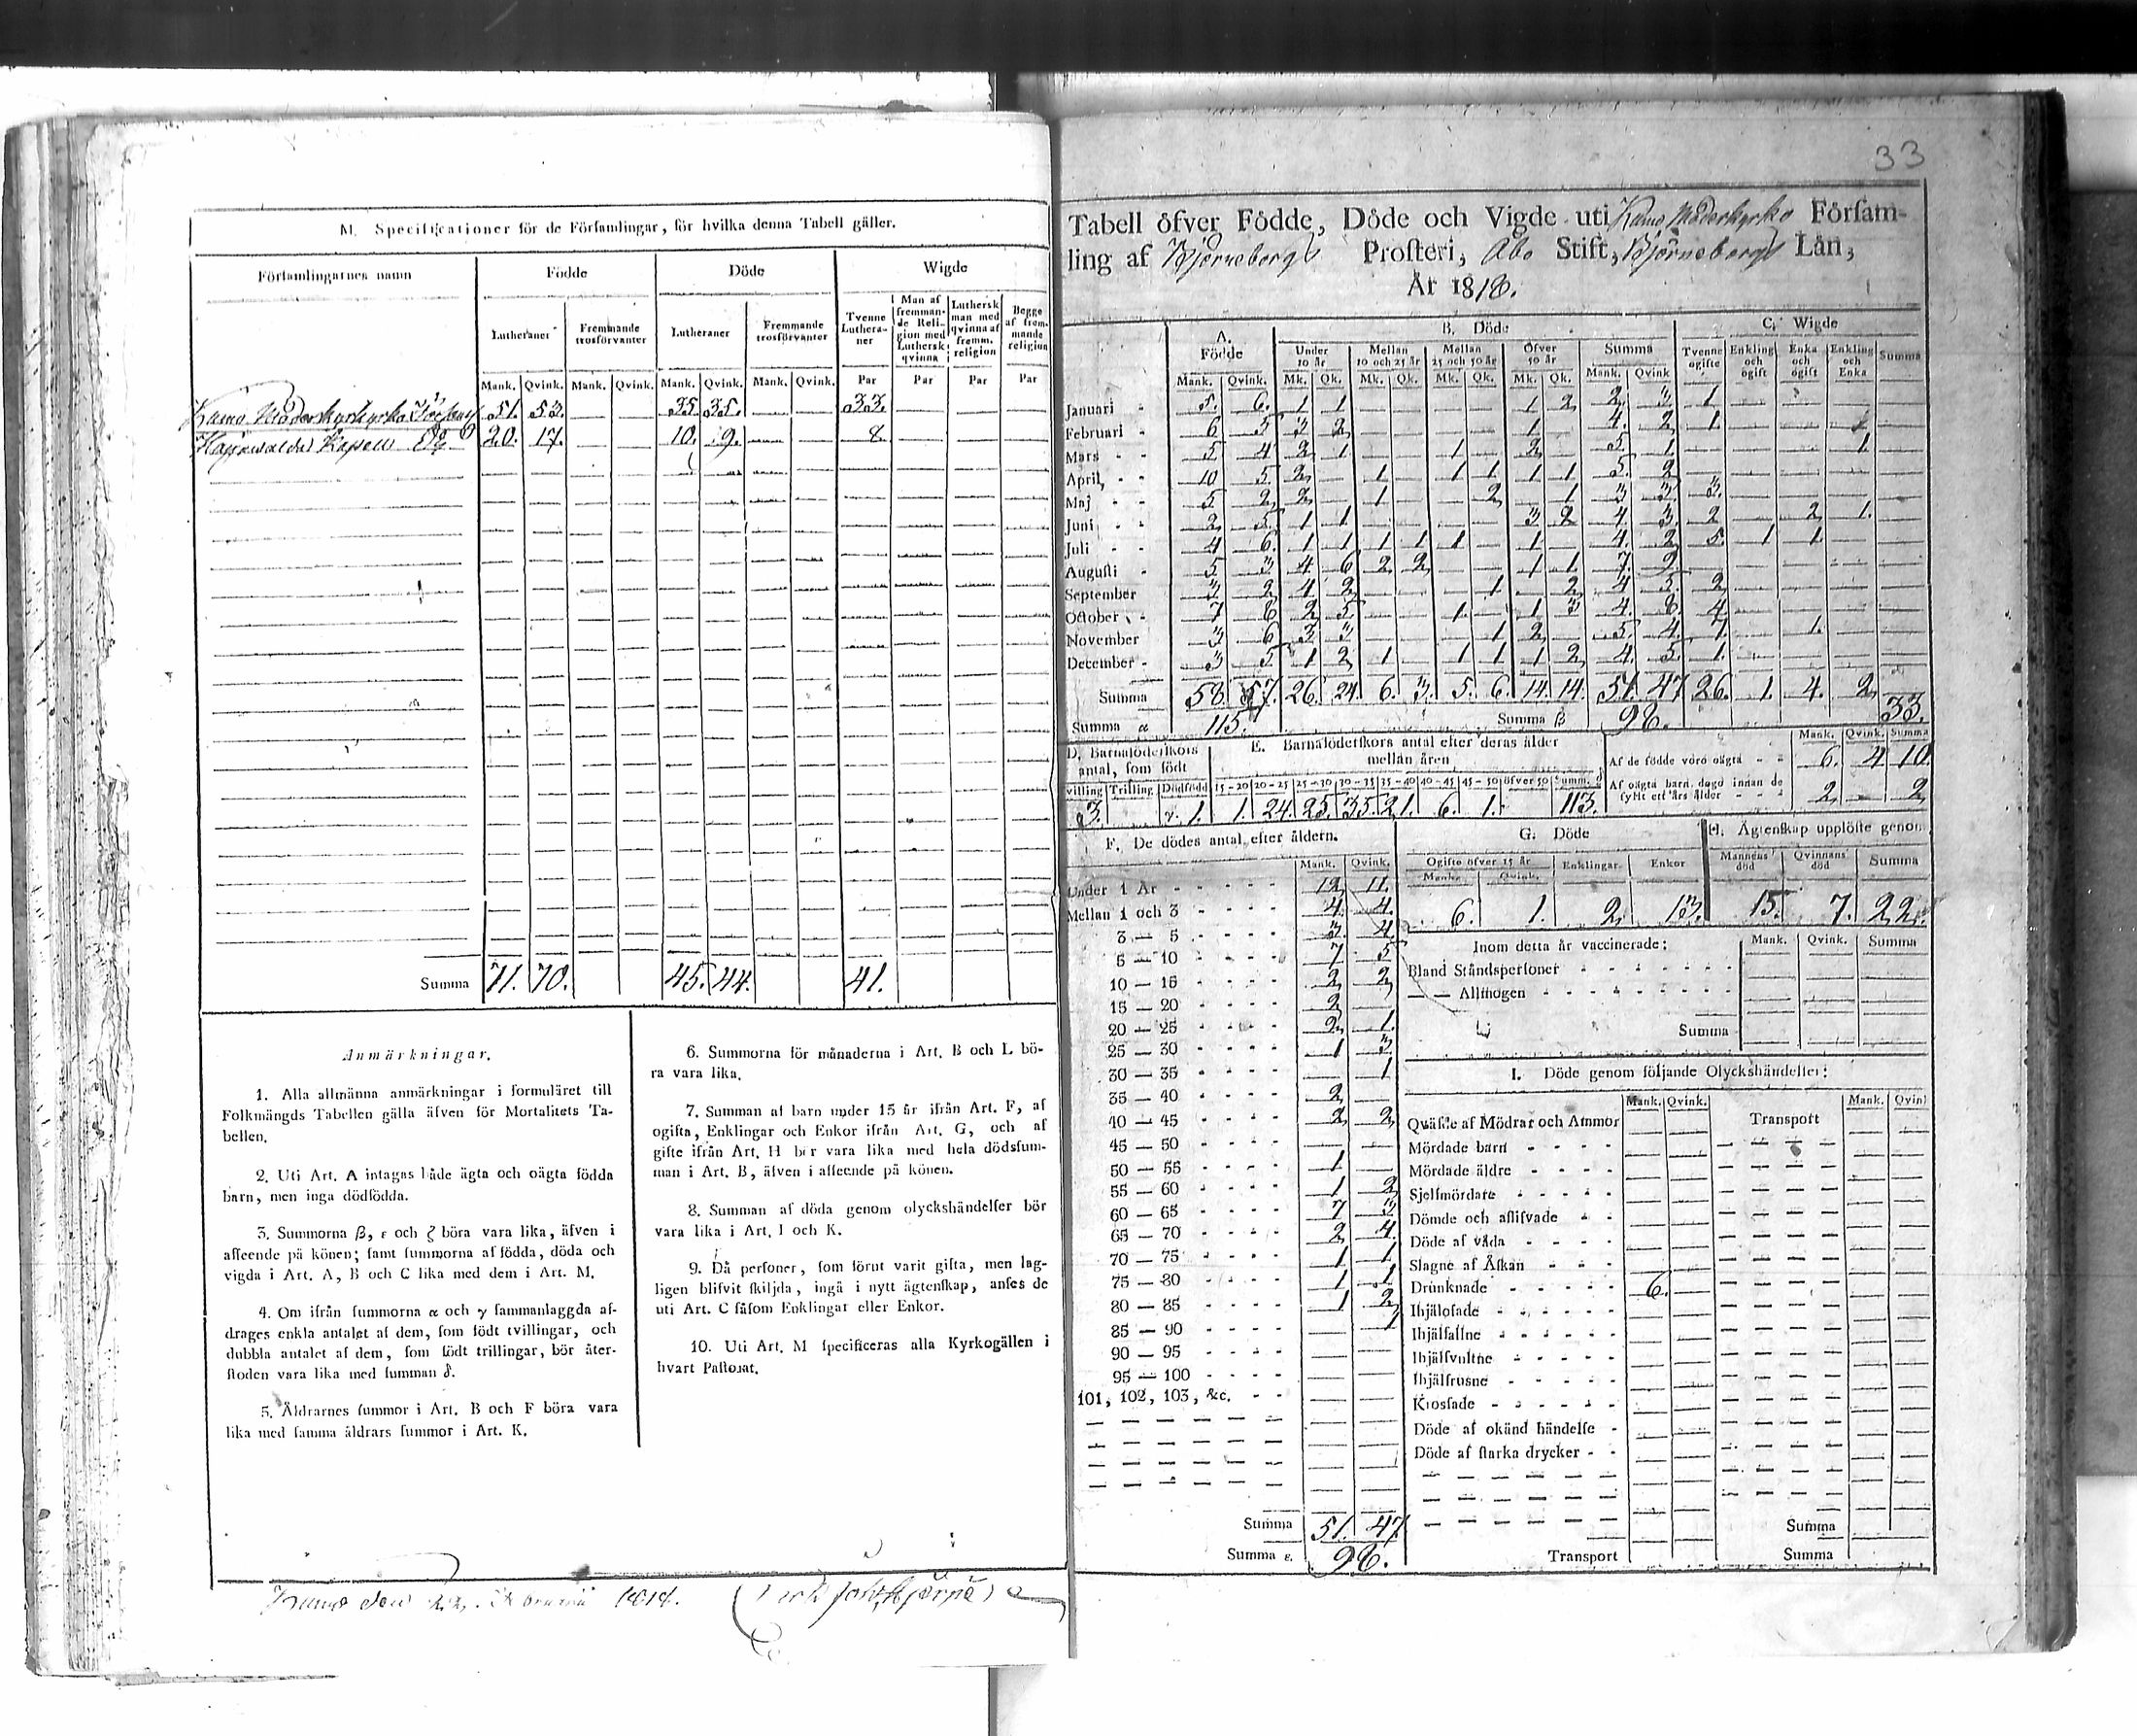 M. Specificationer för de Församlingar, för hvilka denna Tabell gäller.
Församlingarnes namn Födde Döde Wigde
Lutheraner Fremmande trosförvanter Lutheraner Fremmande trosförvanter Tvenne Lutheraner Man af fremmande Religion med Luthersk qvinna Luthersk man med qvinna af fremm. religion Begge af fremmande religion
Mank. Qvink. Mank. Qvink. Mank. Qvink. Mank. Qvink. Par Par Par Par
Kumo Moderkyrko 51. 53. 35. 35. 33.
Kapell 20. 17. 10. 9. 8.
Summa 71. 70. 45. 44. 41.
Anmärkningar.
1. Alla allmänna anmärkningar i formuläret till
Folkmängds Tabellen gälla äfven för Mortalitets Ta-
bellen.
2. Uti Art. A intagas både ägta och oägta födda
barn, men inga dödfödda.
3. Summorna β, ε och ζ böra vara lika, äfven i
afseende på könen; samt summorna af födda, döda och
vigda i Art. A, B och C lika med dem i Art. M.
4. Om ifrån summorna α och γ sammanlaggda af-
drages enkla antalet af dem, som födt tvillingar, och
dubbla antalet af dem, som födt trillingar, bör åter-
stoden vara lika med summan δ.
5. Äldrarnes summor i Art. B och F böra vara
lika med samma äldrars summor i Art. K.
6. Summorna för månaderna i Art. B och L bö-
ra vara lika.
7. Summan af barn under 15 år ifrån Art. F, af
ogifta, Enklingar och Enkor ifrån Art. G, och af
gifte ifrån Art. H bör vara lika med hela dödssum-
man i Art. B, äfven i afseende på könen.
8. Summan af döda genom olyckshändelser bör
vara lika i Art. I och K.
9. Då personer, som förut varit gifta, men lag-
ligen blifvit skiljda, ingå i nytt ägtenskap, anses de
uti Art. C såsom Enklingar eller Enkor.
10. Uti Art. M specificeras alla Kyrkogällen i
hvart Pastorat.
Kumo den
33
Tabell öfver Födde, Döde och Vigde uti Kumo Moderkyrko Församling
af Björneborgs Prosteri, Åbo Stift, Björneborgs Län,
År 1818.
A. Födde B. Döde C. Wigde
Under 10 år Mellan 10 och 25 år Mellan 25 och 50 år Öfver 50 år Summa Tvenne ogifte Enkling och ogift Enka och ogift Enkling och Enka Summa
Mank. Qvink. Mk. Qk. Mk. Qk. Mk. Qk. Mk. Qk. Mank. Qvink
Januari 5. 6. 1 1 1 2 2. 3 1
Februari 6 5 3 2 1 4. 2 1
Mars 5 4 2 1 1 2 5. 1 1.
April, 10 5 2 1 1 1 1 1 5. 2
Maj 5 2 2 1 2 1 3 3 3.
Juni 2 5 1 1 3 2 4. 3. 2 2 1.
Juli 4 6. 1 1 1 1 1 1 4. 2 5. 1 1
Augusti 5 3 4 6 2 2 1 1 7. 9
September 3 2 4 2 1 2 4 5 2
October 7 8 2 5 1 1 3 4. 8 4
November 3 6 3 3 1 2 5. 4. 1. 1.
December 3 5 1 2 1 1 1 1 2 4. 5 1.
Summa 58. 57. 26. 24. 6. 3. 5. 6. 14. 14. 51. 47 26. 1. 4. 2 33.
Summa α 115. Summa β 98.
D. Barnaföderskors antal, som födt
E. Barnaföderskors antal efter deras ålder mellan åren
Mank. Qvink. Summa
Tvilling Trilling Dödfödd 15-20 20-25 25-30 30-35 35-40 40-45 45-50 öfver 50 Summ. δ
3. γ. 1. 1. 24. 25. 35. 21. 6. 1. 113.
Af de födde voro oägta 6. 4 10
Af oägta barn dogo innan de fyllt ett års ålder 2 2
F. De dödes antal efter åldern.
Mank. Qvink.
Under 1 År 12 11.
Mellan 1 och 3 4. 4.
3 — 5 3. 4.
5 — 10 7 5
10 — 15 2 2
15 — 20 2
20 — 25 2 1.
25 — 30 1 3
30 — 35 1
35 — 40 2
40 — 45 2 2
45 — 50
50 — 55 1
55 — 60 1 2
60 — 65 7 3
65 — 70 2 4.
70 — 75 1 1
75 — 80 1 1
80 — 85 1 2
85 — 90 1
90 — 95
95 — 100
101, 102, 103, &c.
Summa 51. 47
Summa ε. 98.
G. Döde
Ogifte öfver 15 år Enklingar Enkor
Mank. Qvink.
6. 1. 2. 13.
H. Ägtenskap upplöste genom
Mannens död Qvinnans död Summa
15. 7. 22.
Inom detta år vaccinerade: Mank. Qvink. Summa
Bland Ståndspersoner
— — Allmogen
Summa
I. Döde genom följande Olyckshändelser:
Mank. Qvink. Mank. Qvink
Qväfde af Mödrar och Ammor Transport
Mördade barn
Mördade äldre
Sjelfmördare
Dömde och aflifvade
Döde af våda
Slagne af Åskan
Drunknade 6.
Ihjälosade
Ihjälfallne
Ihjälsvultne
Ihjälfrusne
Krossade
Döde af okänd händelse
Döde af starka drycker
Summa
Transport Summa